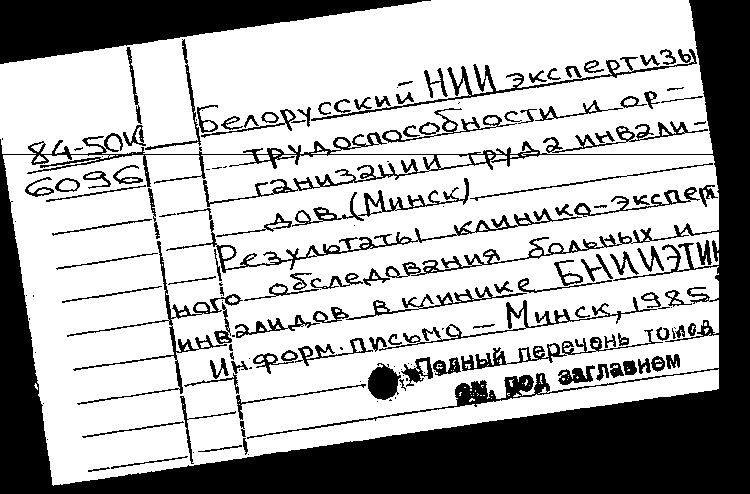 84-50К
6096
Белорусский НИИ экспертизы
трудоспособности и ор-
ганизации труда инвали-
дов. (Минск).
Результаты клинико-экспер
ного обследования больных и
инвалидов в клинике БНИИЭТИН
Информ. письмо – Минск, 1985
Полный перечень томов
см. под заглавием